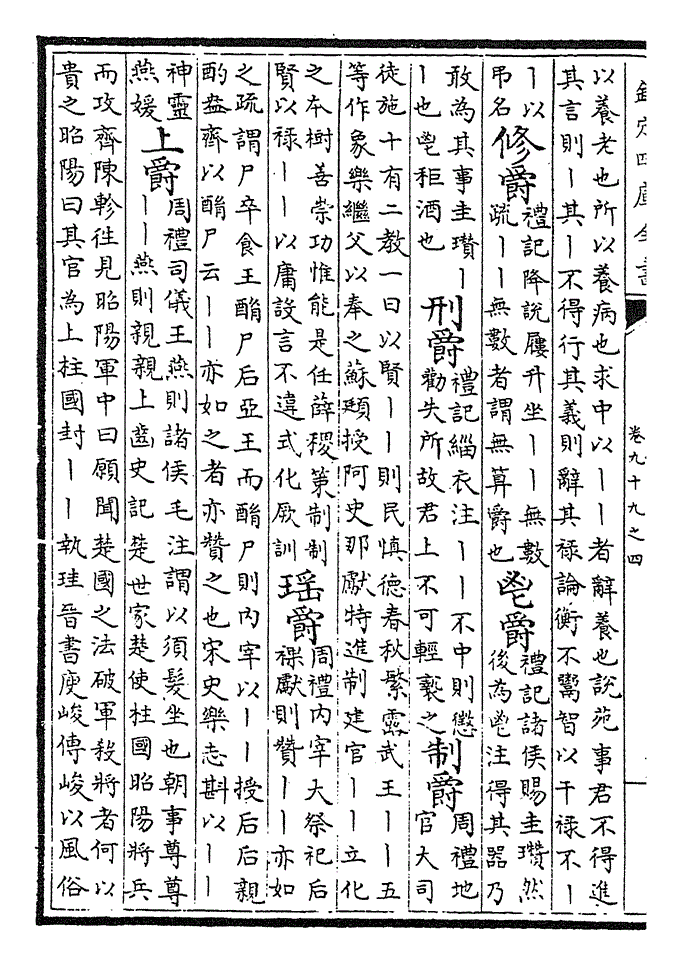 欽定四庫全書 卷九十九之四
以養老也所以養病也求中以丨丨者辭養也說苑事君不得進
其言則丨其丨不得行其義則辭其祿論衡不鬻智以干祿不丨
丨以
弔名
修爵
禮記降說屨升坐丨丨無數
疏丨丨無數者謂無算爵也
鬯爵
禮記諸侯賜圭瓉然
後為鬯注得其器乃
敢為其事圭瓉丨
丨也鬯秬酒也
刑爵
禮記緇衣注丨丨不中則懲
勸失所故君上不可輕褻之
制爵
周禮地
官大司
徒施十有二教一曰以賢丨丨則民慎德春秋繁露武王丨丨五
等作象樂繼父以奉之蘇頲授阿史那獻特進制建官丨丨立化
之本樹善崇功惟能是任薛稷策制制
賢以祿丨丨以庸設言不違式化厥訓
瑶爵
周禮内宰大祭祀后
祼獻則贊丨丨亦如
之疏謂尸卒食王酳尸后亞王而酳尸則内宰以丨丨授后后親
酌盎齊以酳尸云丨丨亦如之者亦贊之也宋史樂志斟以丨丨
神靈
燕媛
上爵
周禮司儀王燕則諸侯毛注謂以須髮坐也朝事尊尊
丨丨燕則親親上齒史記楚世家楚使柱國昭陽將兵
而攻齊陳軫徃見昭陽軍中曰願聞楚國之法破軍殺將者何以
貴之昭陽曰其官為上柱國封丨丨執珪晉書庾峻傳峻以風俗